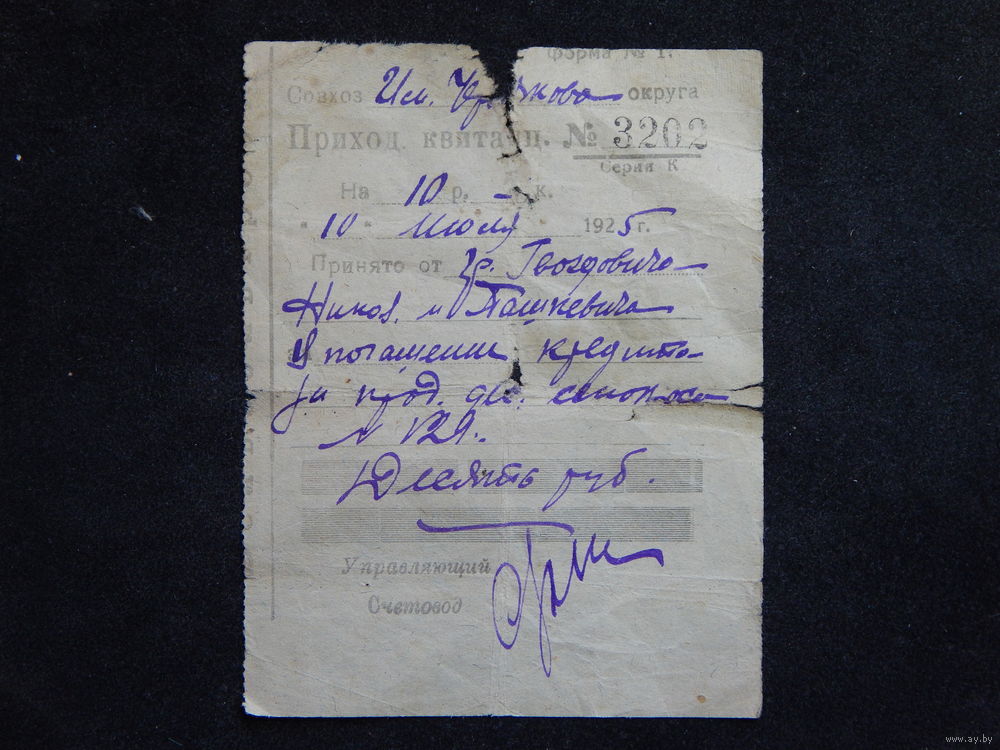 форма № 1.
Совхоз Им. округа
Приход. квитанц. № 3202
Серии К
На 10 р. – к.
"10" июля 1925 г.
Принято от гр. Гвоздовича
Никол. и Пашкевича
В погашении кредита
за прод. дес. сенокоса
№ 129.
Десять руб.
Управляющий
Счетовод
www.ay.by